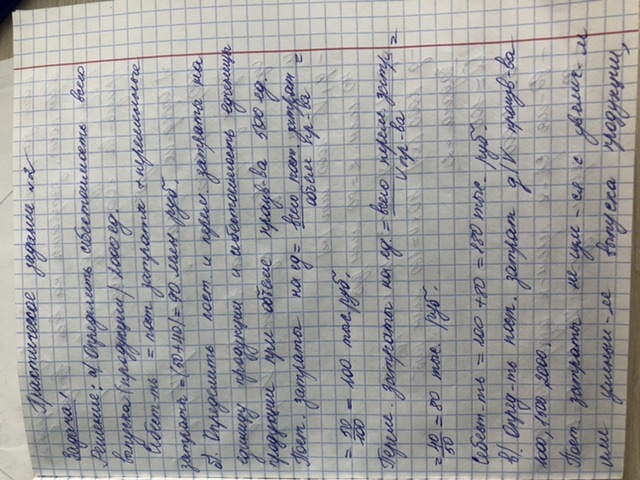 Практическое задание №2
Задача 1
Решение: а) Определить себестоимость всего
выпуска (продукции) 1000 ед.
Себест-ть = пост затраты + переменные
затраты = (50+40) = 90 млн руб.
б). Определить пост и перем затраты на
единицу продукции и себестоимость единицы
продукции при объеме произв-ва 500 ед.
Пост. затраты на ед = всего пост затрат / объем пр-ва =
= = 100 тыс. руб.
Перем. затраты на ед = всего перем затр. / V пр-ва =
= 40/50 = 80 тыс. руб.
Себест-ть = 100 + 80 = 180 тыс. руб.
в). Опред-ть пост. затрат д/V произв-ва
1100, 2000.
Пост. затраты не изм-ся с увелич-м
или уменьш-ем выпуска продукции,